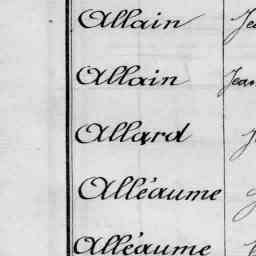 Allain
Allain Jean
Allard
Alléaume
Alléaume